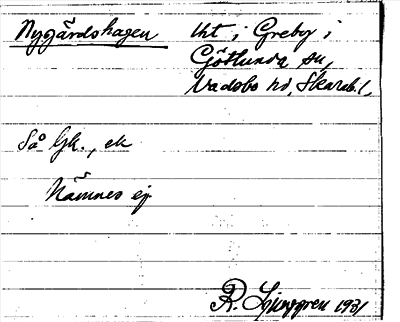 Nygårdshagen
Uht i Greby i
Götlunda sn,
Vadsbo hd, Skarab.l,
Så Gk., ek
Nämnes ej
R. Ljunggren 1931